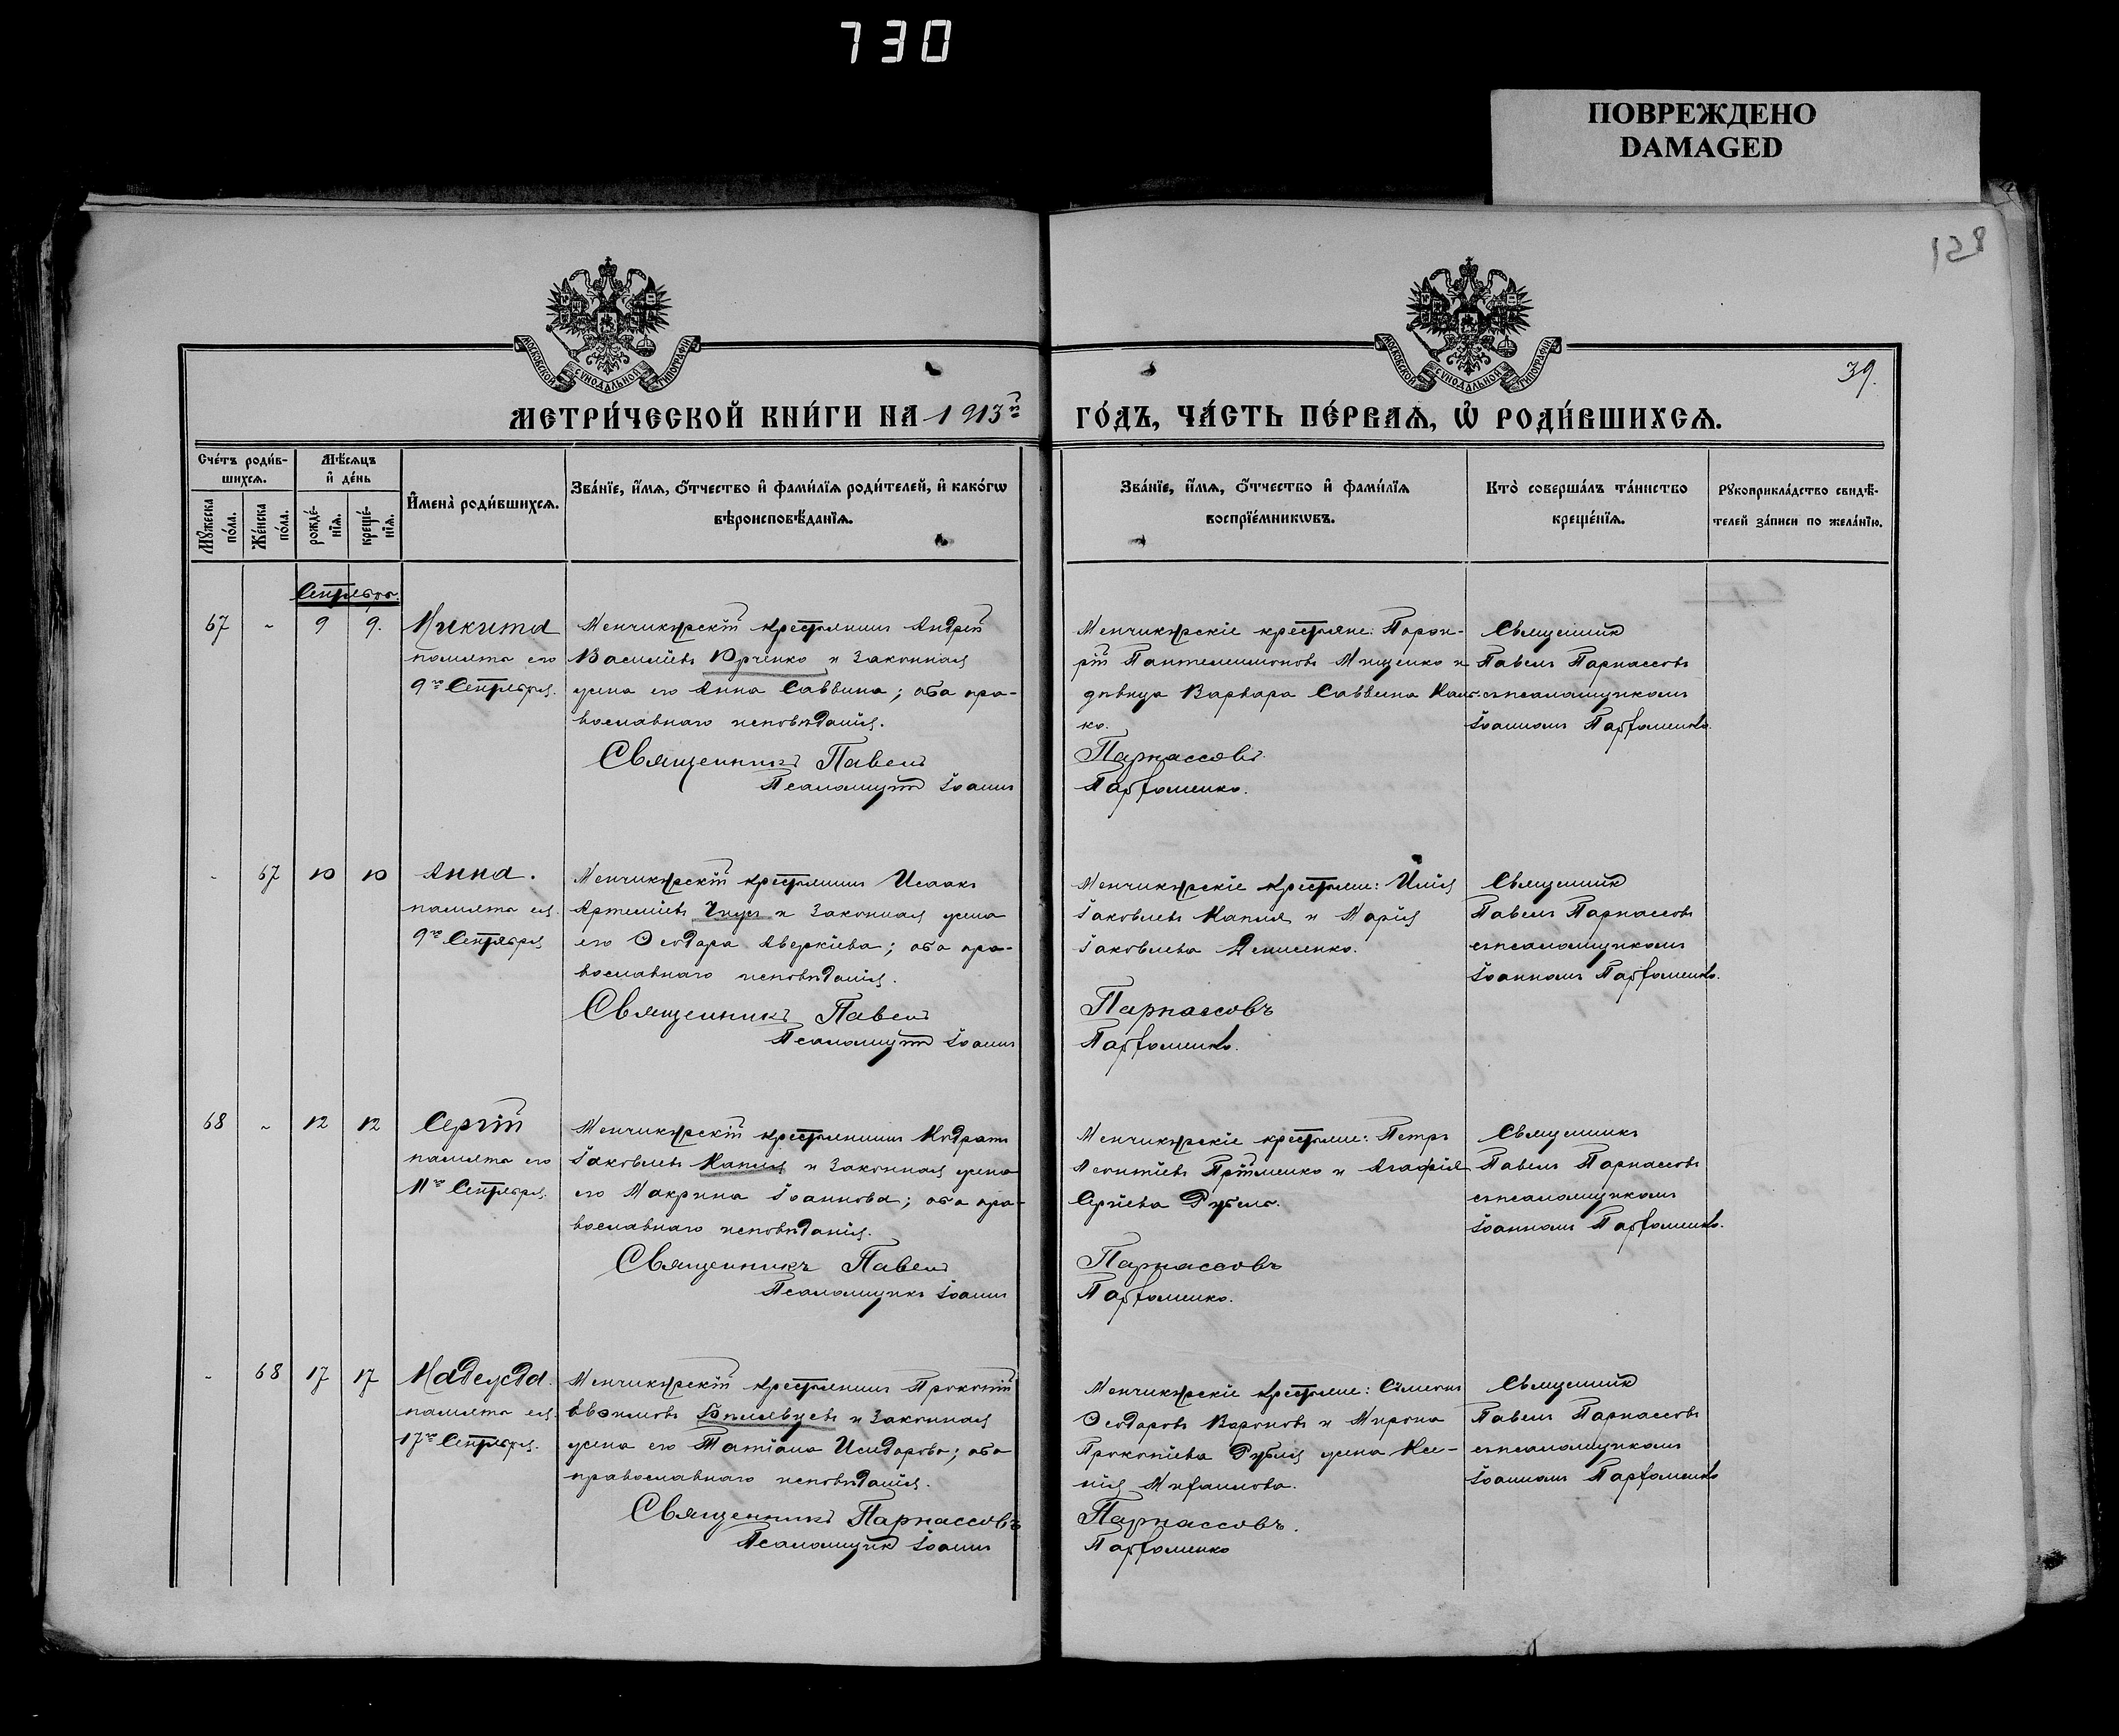 730
ПОВРЕЖДЕНО
DAMAGED
128
39.
МОСКОВСКОЙ СѴНОДАЛЬНОЙ ТИПОГРАФІИ
МОСКОВСКОЙ СѴНОДАЛЬНОЙ ТИПОГРАФІИ
МЕТРИ́ЧЕСКОЙ КНИ́ГИ НА 1913 го
ГО́ДЪ, ЧА́СТЬ ПЕ́РВАѦ, Ѡ҆ РОДИ́ВШИХСѦ.
Сче́тъ роди́в-
шихсѧ.
Мѣ́сѧцъ
и҆ де́нь
Мꙋ́жеска
по́ла.
Же́нска
по́ла.
рожде́-
нїѧ.
креще́-
нїѧ.
И҆мена̀ роди́вшихсѧ.
Зва́нїе, и҆́мѧ, ѻ҆́тчество и҆ фами́лїѧ роди́телей, и҆ како́гѡ
вѣроисповѣ́данїѧ.
Зва́нїе, и҆́мѧ, ѻ҆́тчество и҆ фами́лїѧ
воспрїе́мникѡвъ.
Кто̀ соверша́лъ та́инство
креще́нїѧ.
Рꙋкоприкла́дство свидѣ́-
телей за́писи по жела́нїю.
Сентябрь.
67 - 9 9. Никита
память его
9го Сентября.
Менчикурскій крестьянинъ Андрей
Василіевъ Юрченко и законная
жена его Анна Саввина; оба пра-
вославнаго исповѣданія.
Священникъ Павелъ
Псаломщикъ Іоаннъ
Менчикурскіе крестьяне:
Пантелеимоновъ Мищенко и
дѣвица Варвара Саввина
ко.
Парнассовъ.
Парфоменко.
Священникъ
Павелъ Парнассовъ
съ псаломщикомъ
Іоанномъ Парфоменко.
- 67 10 10 Анна.
память ея
9го Сентября
Менчикурскій крестьянинъ Исаакъ
Артеміевъ и законная жена
его Ѳеодора Аверкіева; оба пра-
вославнаго исповѣданія.
Священникъ Павелъ
Псаломщикъ Іоаннъ
Менчикурскіе крестьяне: Илія
Іаковлевъ Капля и Марія
Іаковлева Денисенко.
Парнассовъ
Парфоменко.
Священникъ
Павелъ Парнассовъ
съ псаломщикомъ
Іоанномъ Парфоменко.
68 - 12 12 Сергій
память его
11го Сентября.
Менчикурскій крестьянинъ Кодратъ
Іаковлевъ Капля и законная жена
его Макрина Іоаннова; оба пра-
вославнаго исповѣданія.
Священникъ Павелъ
Псаломщикъ Іоаннъ
Менчикурскіе крестьяне: Петръ
Леонтіевъ и Агафія
Сергіева
Парнассовъ
Парфоменко.
Священникъ
Павелъ Парнассовъ
съ псаломщикомъ
Іоанномъ Парфоменко.
- 68 17 17 Надежда.
память ея
17го Сентября.
Менчикурскій крестьянинъ Прокопій
Евѳимовъ и законная
жена его Татіана Исидорова; оба
православнаго исповѣданія.
Священникъ Парнассовъ
Псаломщикъ Іоаннъ
Менчикурскіе крестьяне: Симеонъ
Ѳеодоровъ Вароновъ и Мирона
Прокопіева жена Ксе-
нія Михаилова.
Парнассовъ.
Парфоменко
Священникъ
Павелъ Парнассовъ
съ псаломщикомъ
Іоанномъ Парфоменко